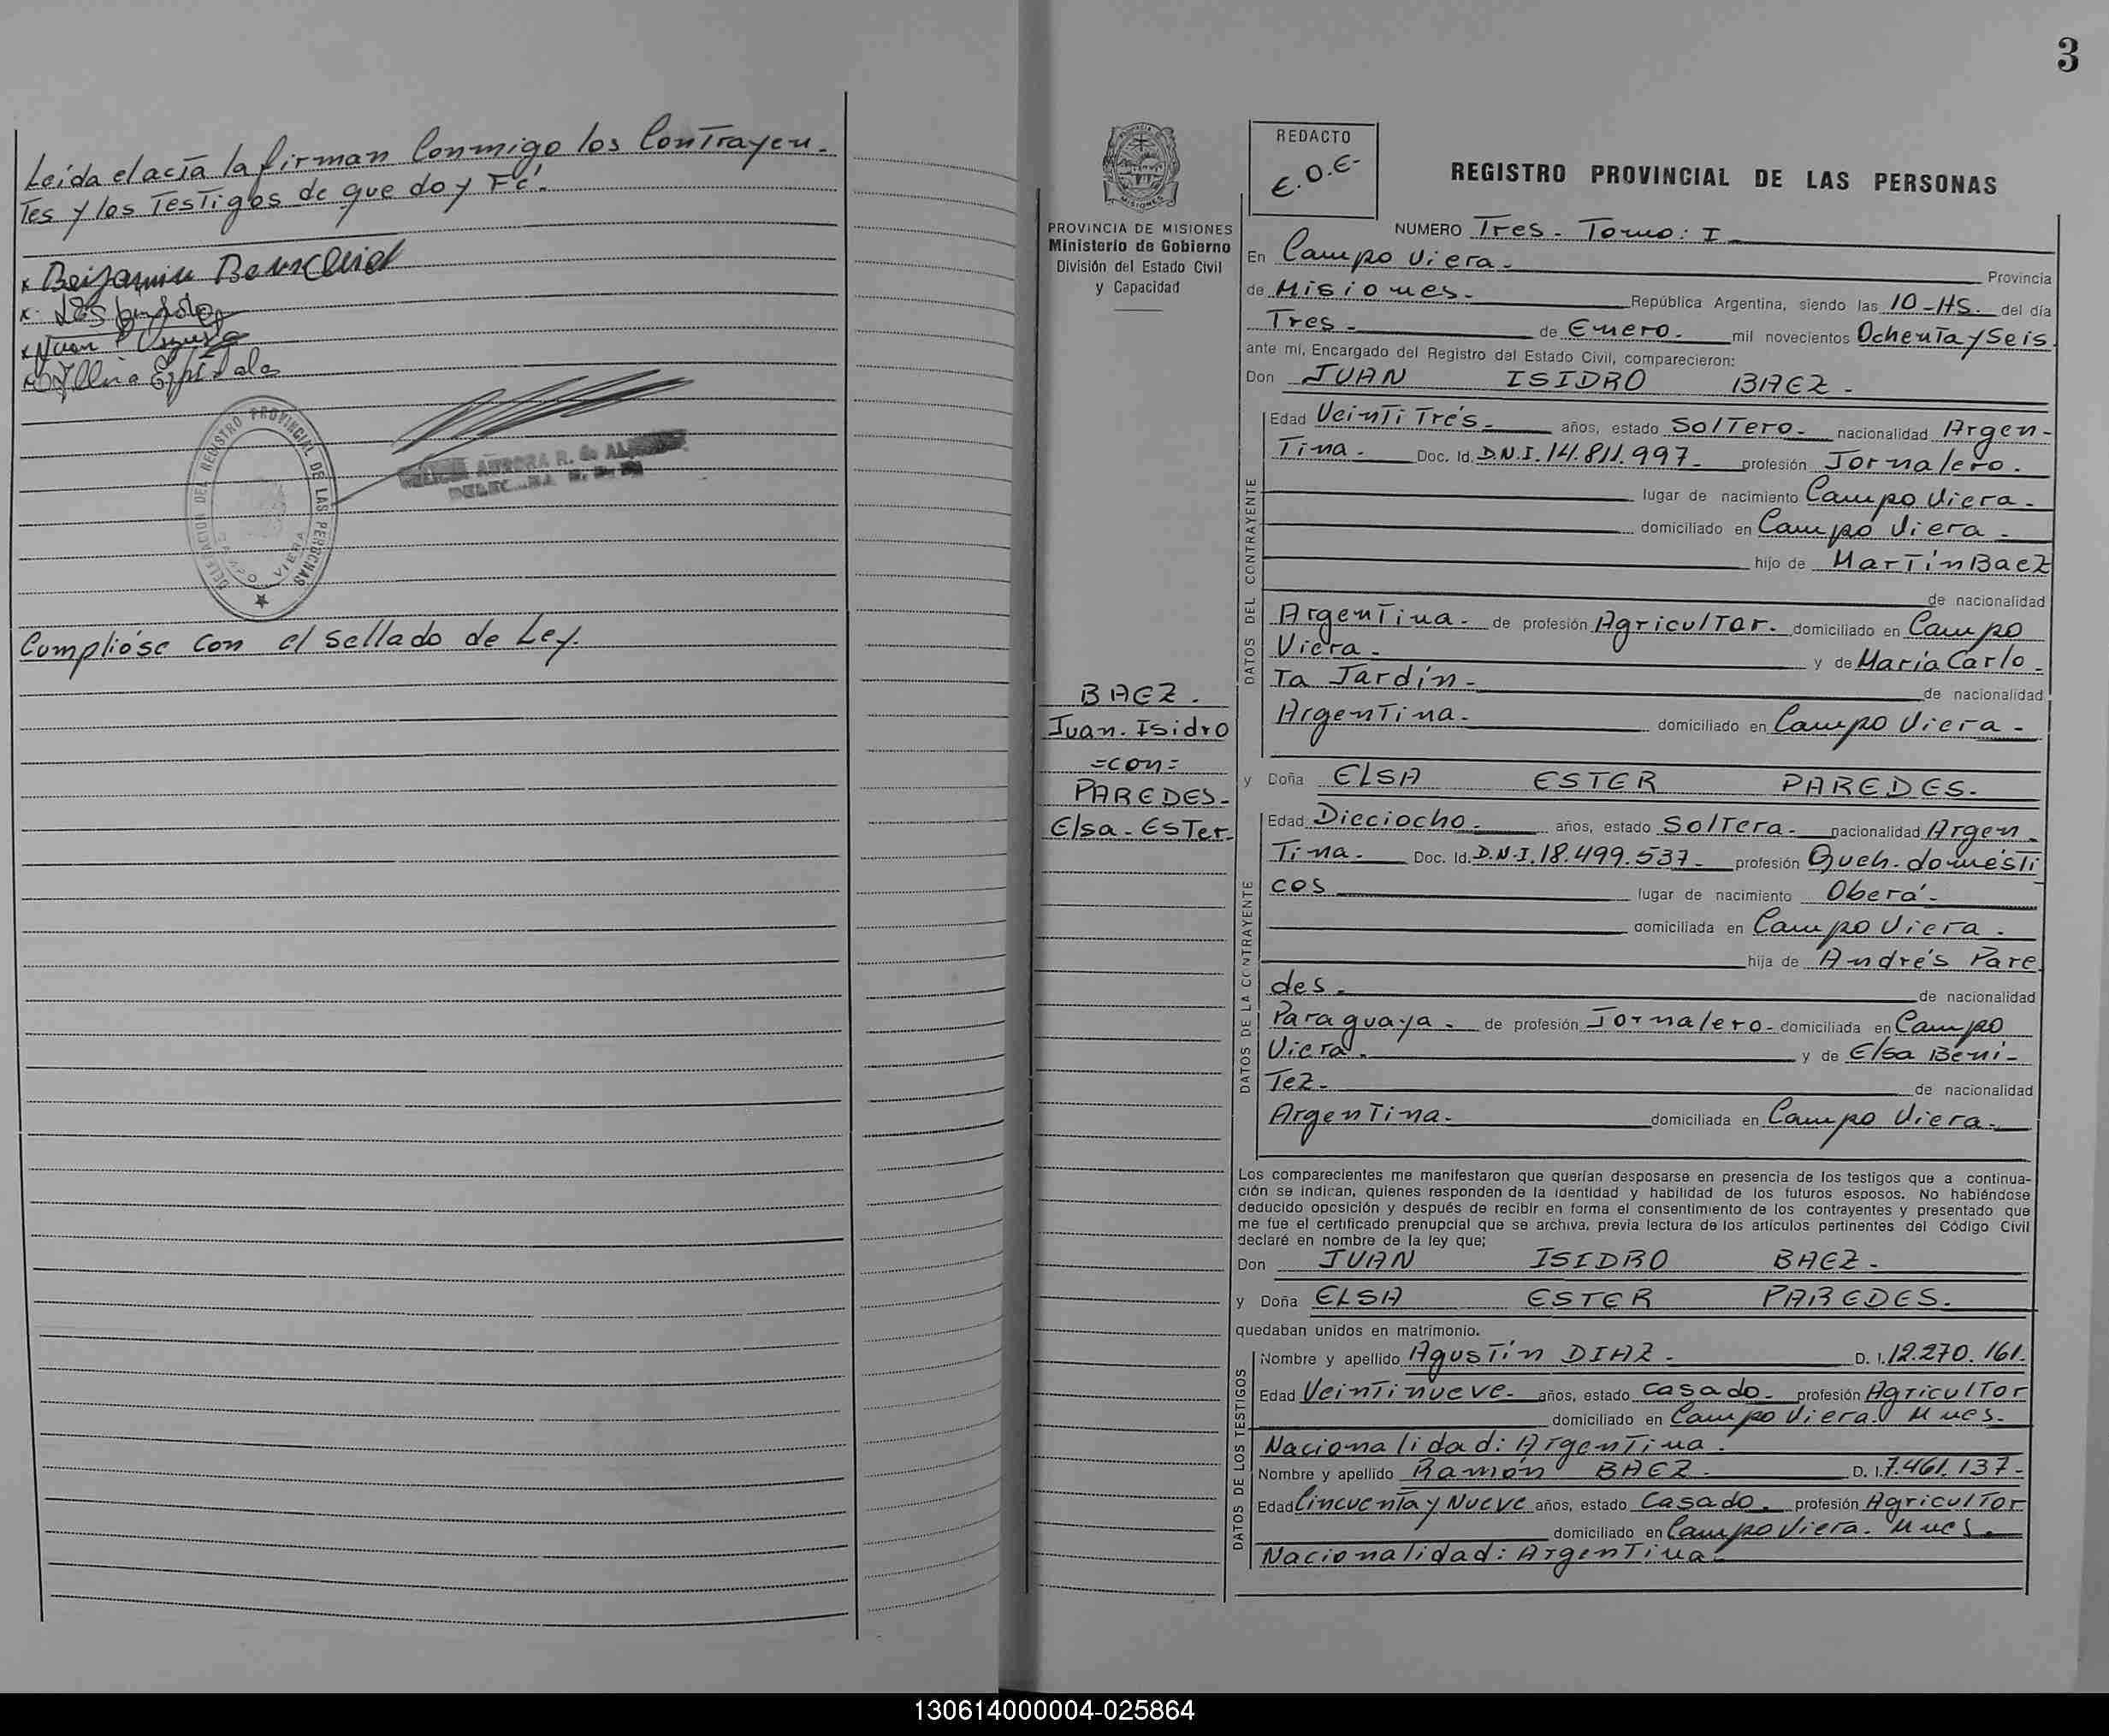 Leída el acta la firman Conmigo los Contrayen-
tes y los Testigos de que doy Fé.
x Benjamin
x
x Juan
Cumplióse con el sellado de Ley.
DELEGACION DEL REGISTRO PROVINCIAL DE LAS PERSONAS
CAMPO VIERA
AURORA R. de
3
PROVINCIA DE MISIONES
Ministerio de Gobierno
División del Estado Civil
y Capacidad
BAEZ.
Juan. Isidro
=con=
PAREDES-
Elsa-Ester-
REDACTO
E.O.E-
REGISTRO PROVINCIAL DE LAS PERSONAS
NUMERO Tres- Tomo: I-
En Campo Viera- Provincia
de Misiones- República Argentina, siendo las 10-HS. del día
Tres- de Enero- mil novecientos Ochenta y Seis.
ante mí, Encargado del Registro del Estado Civil, comparecieron:
Don JUAN ISIDRO BAEZ-
DATOS DEL CONTRAYENTE
Edad Veinti Trés- años, estado Soltero- nacionalidad Argen-
tina- Doc. Id. D.N.I. 14.811.997- profesión Jornalero.
lugar de nacimiento Campo Viera-
domiciliado en Campo Viera-
hijo de Martín Baez
de nacionalidad
Argentina- de profesión Agricultor- domiciliado en Campo
Viera- y de María Carlo-
ta Jardín- de nacionalidad
Argentina- domiciliado en Campo Viera-
y Doña ELSA ESTER PAREDES-
DATOS DE LA CONTRAYENTE
Edad Dieciocho- años, estado Soltera- nacionalidad Argen-
tina- Doc. Id. D.N.I. 18.499.537- profesión Queh. domésti
cos lugar de nacimiento Oberá-
domiciliada en Campo Viera.
hija de Andrés Pare
des- de nacionalidad
Paraguaya- de profesión Jornalero- domiciliada en Campo
Viera- y de Elsa Bení-
tez- de nacionalidad
Argentina- domiciliada en Campo Viera-
Los comparecientes me manifestaron que querían desposarse en presencia de los testigos que a continua-
ción se indican, quienes responden de la identidad y habilidad de los futuros esposos. No habiéndose
deducido oposición y después de recibir en forma el consentimiento de los contrayentes y presentado que
me fue el certificado prenupcial que se archiva, previa lectura de los artículos pertinentes del Código Civil
declaré en nombre de la ley que;
Don JUAN ISIDRO BAEZ-
y Doña ELSA ESTER PAREDES.
quedaban unidos en matrimonio.
DATOS DE LOS TESTIGOS
Nombre y apellido Agustín DIAZ- D. I. 12.270.161.
Edad Veintinueve- años, estado casado- profesión Agricultor
domiciliado en Campo Viera. Mnes.
Nacionalidad: Argentina.
Nombre y apellido Ramón BAEZ- D. I. 7.461.137-
Edad Cincuenta y Nueve años, estado Casado. profesión Agricultor
domiciliado en Campo Viera. Mnes.
Nacionalidad: Argentina-
130614000004-025864